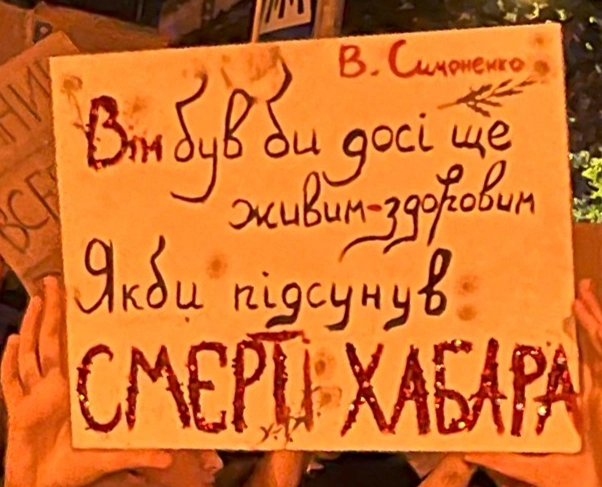 В. Симоненко
Він був би досі ще
живим-здоровим
Якби підсунув
СМЕРТІ ХАБАРА